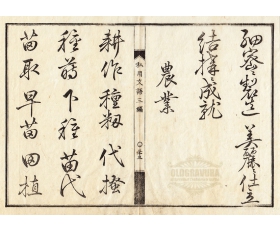 細密之製造美麗之仕立
結構之成就
農業
耕作種籾代掻
種蒔下種苗代
苗取早苗田植
私用文語三編